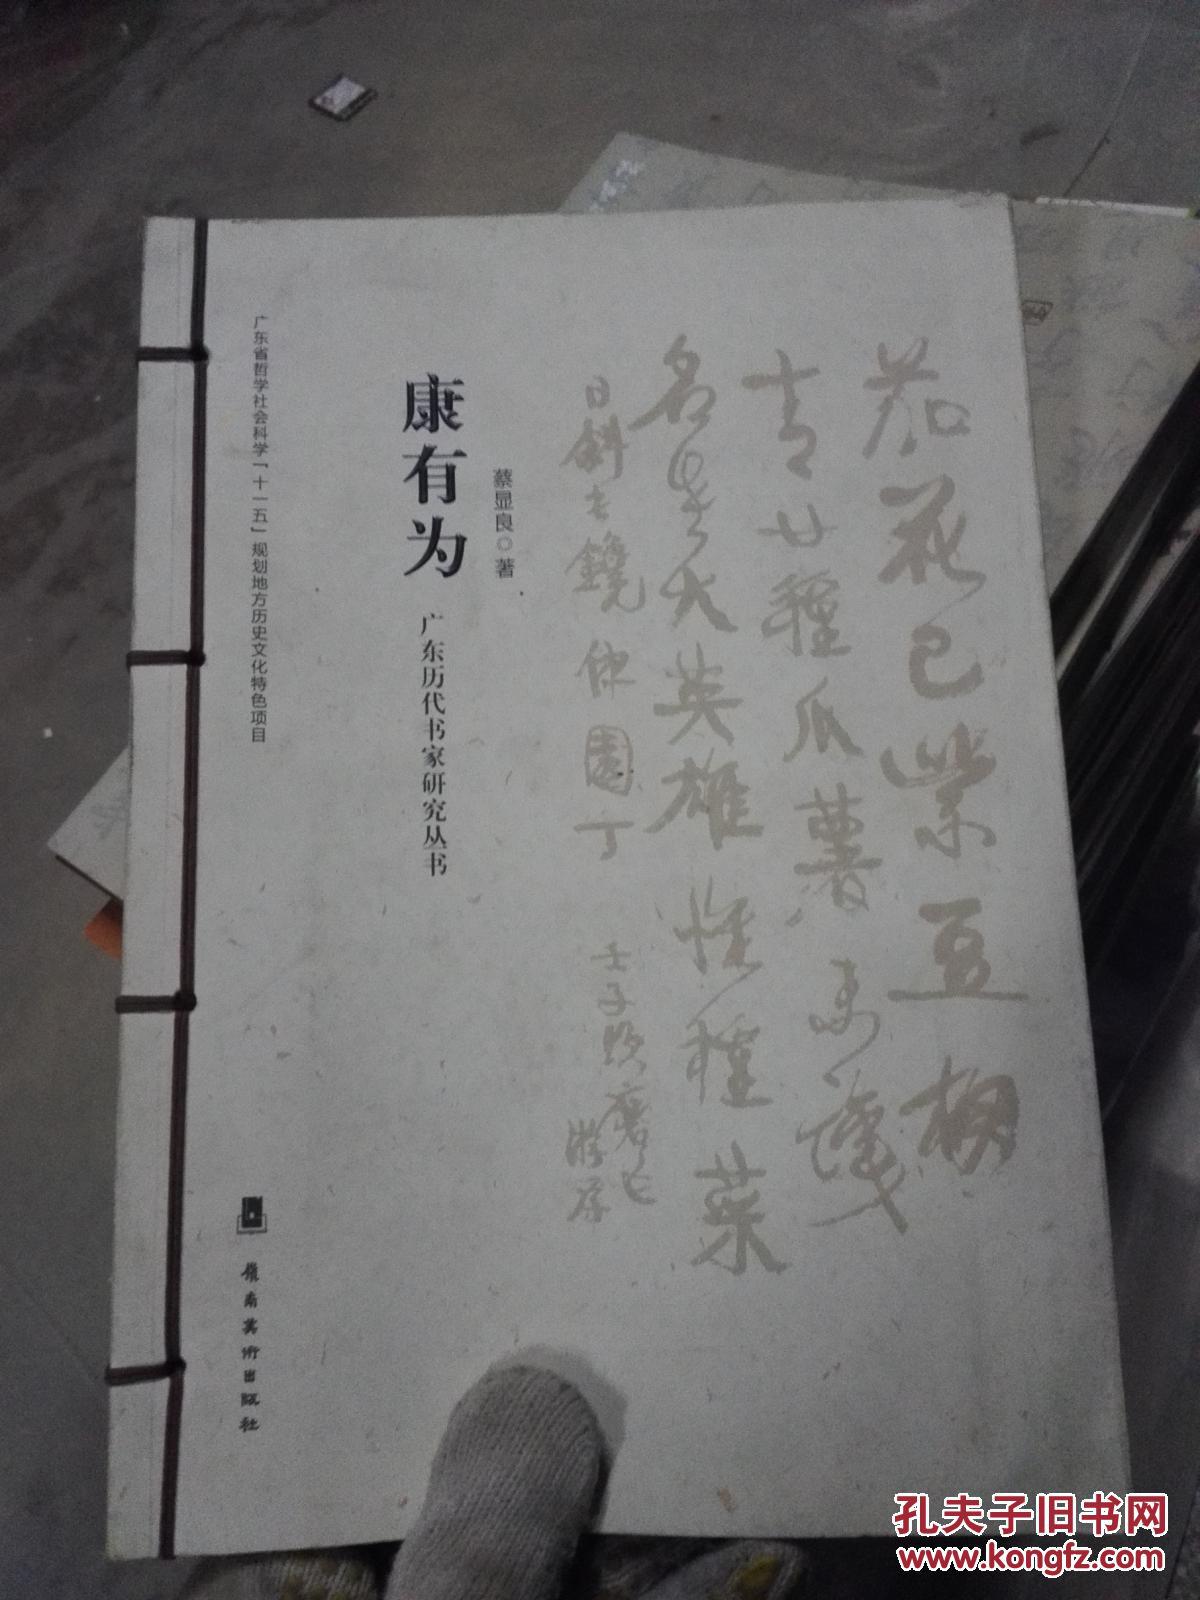 康有为
广东历代书家研究丛书
蔡显良◎著
广东省哲学社会科学「十一五」规划地方历史文化特色项目
嶺南美術出版社
茄花已紫豆棚
青廿種瓜薯
名
大英雄惟種菜
日斜
園丁
壬子
孔夫子旧书网
www.kongfz.com